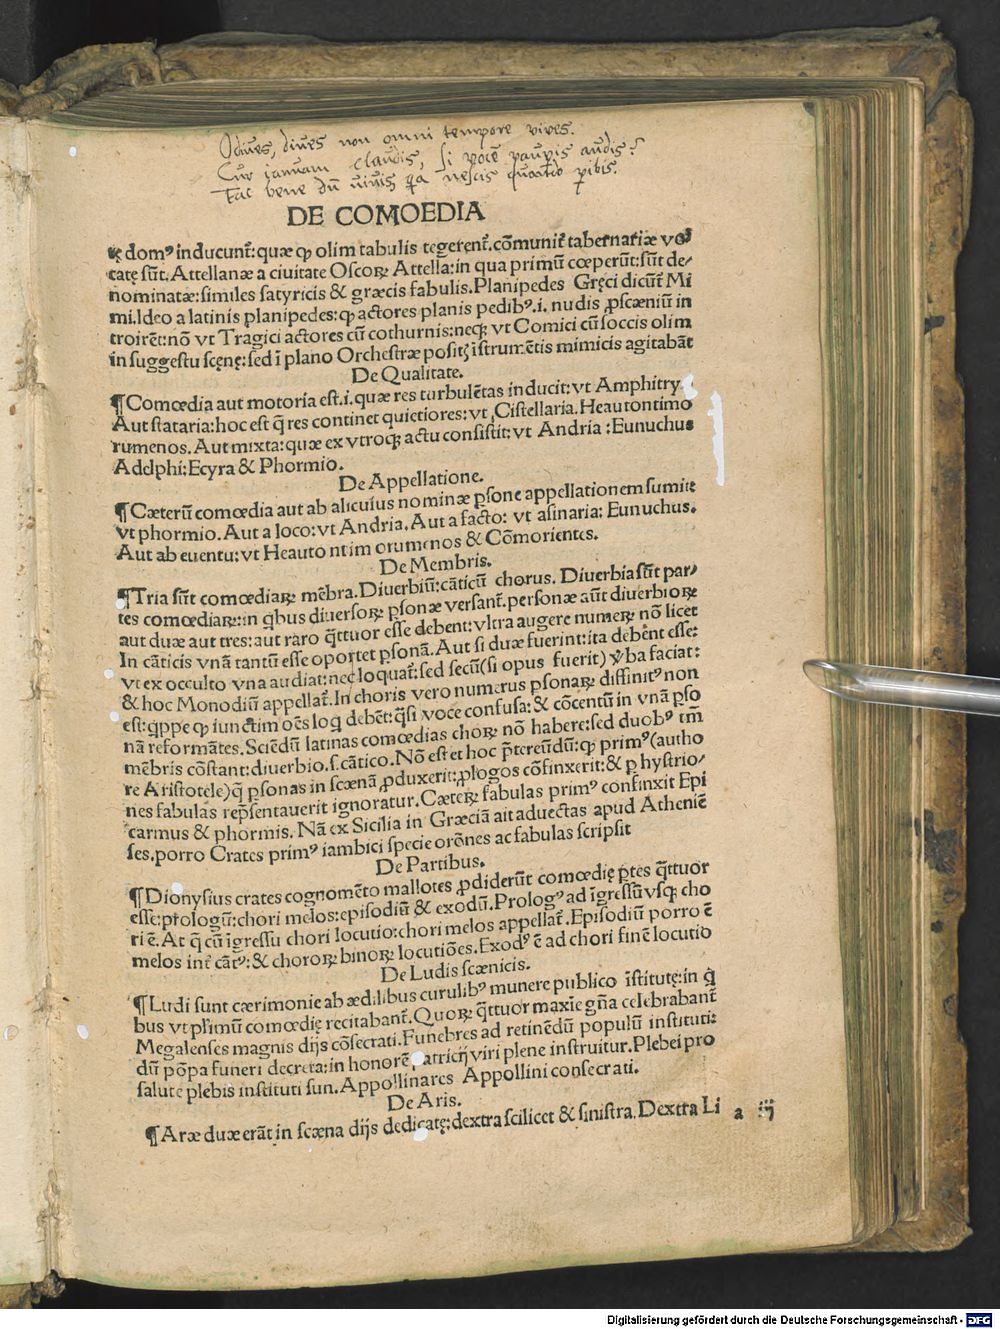 O diues, diues non omni tempore viues.
Cur januam claudis, si vocē paup̄is audis?
Fac bene dū viuis, q̄a nescis quando p̱ibis.
DE COMOEDIA
dom⁹ inducunt̄: quæ ꝙ olim tabulis tegerent̄. cōmunit̄ tabernariæ vo-
catę sūt. Attellanæ a ciuitate Oscoꝝ Attella: in qua primū cœperūt: sūt de-
nominatæ: similes satyricis & græcis fabulis. Planipedes Gręci dicūt Mi
mi. Ideo a latinis planipedes: ꝙ actores planis pedib⁹. i. nudis ꝓscæniū in
troirēt: nō vt Tragici actores cū cothurnis: neqꝫ vt Comici cū soccis olim
in suggestu scęnę: sed ī plano Orchestræ positꝭ īstrumētis mimicis agitabāt
De Qualitate.
¶ Comœdia aut motoria est. i. quæ res turbulētas inducit: vt Amphitry
Aut stataria: hoc est q̄ res continet quietiores: vt Cistellaria. Heautontimo
rumenos. Aut mixta: quæ ex vtroqꝫ actu consistit: vt Andria: Eunuchus
Adelphi: Ecyra & Phormio.
De Appellatione.
¶ Cæterū comœdia aut ab alicuius nominæ ꝑsone appellationem sumit:
vt phormio. Aut a loco: vt Andria. Aut a facto: vt asinaria: Eunuchus.
Aut ab euentu: vt Heauto ntim orumenos & Cōmorientes.
De Membris.
¶ Tria sūt comœdiaꝝ mēbra. Diuerbiū: cāticū chorus. Diuerbia sūt par-
tes comœdiaꝝ: in ꝗbus diuersoꝝ ꝑsonæ versant̄. personæ aūt diuerbioꝝ
aut duæ aut tres: aut raro q̄ttuor esse debent: vltra augere numeꝝ nō licet
In cāticis vnā tantū esse oportet ꝑsonā. Aut si duæ fuerint: ita debēnt esse:
vt ex occulto vna audiat: nec loquat̄: sed secū (si opus fuerit) v̄ba faciat:
& hoc Monodiū appellat̄. In choris vero numerus ꝑsonaꝝ diffinit⁹ non
est: ꝗppe ꝙ iunctim oēs loꝗ debēt: q̄si voce confusa: & cōcentū in vnā ꝑso
nā reformātes. Sciēdū latinas comœdias choꝝ nō habere: sed duob⁹ tm̄
mēbris cōstant: diuerbio. s. cātico. Nō est et hoc p̄tereūdū: ꝙ prim⁹ (autho
re Aristotele) ꝗ ꝑsonas in scænā ꝓduxerit: ꝓlogos cōfinxerit: & ꝑ hystrio-
nes fabulas rep̄sentauerit ignoratur. Cæteꝝ fabulas prim⁹ confinxit Epi
carmus & phormis. Nā ex Sicilia in Græciā ait aduectas apud Atheniē
ses. porro Crates prim⁹ iambici specie orōnes ac fabulas scripsit
De Partibus.
¶ Dionysius crates cognomēto mallotes ꝓdiderūt comœdię ꝑtes q̄ttuor
esse: prologū: chori melos: episodiū & exodū. Prolog⁹ ad īgressū vsqꝫ cho
ri ē. At q̄ cū īgressu chori locutio: chori melos appellat̄. Episodiū porro ē
melos int̄ cāt⁹: & choroꝝ binoꝝ locutiōes. Exod⁹ ē ad chori finē locutio
De Ludis scænicis.
¶ Ludi sunt cærimonie ab ædilibus curulib⁹ munere publico īstitutę: in ꝗ
bus vt primū comœdię recitabant̄. Quoꝝ q̄ttuor maxie gn̄a celebrabant̄
Megalenses magnis dijs cōsecrati. Funebres ad retinēdū populū instituti:
dū pōpa funeri decreta: in honorē patricij viri plene instruitur. Plebei pro
salute plebis instituti sun. Appollinares Appollini consecrati.
De Aris.
¶ Aræ duæ erāt in scæna dijs dedicatę: dextra scilicet & sinistra. Dextra Li
a iij
Digitalisierung gefördert durch die Deutsche Forschungsgemeinschaft - DFG